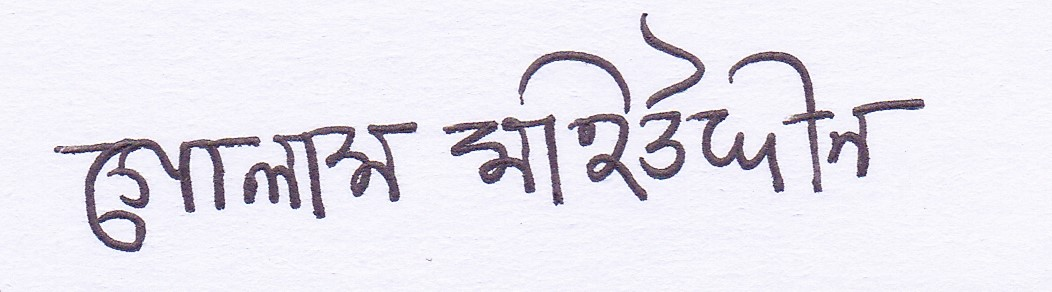 গোলাম মহিউদ্দীন